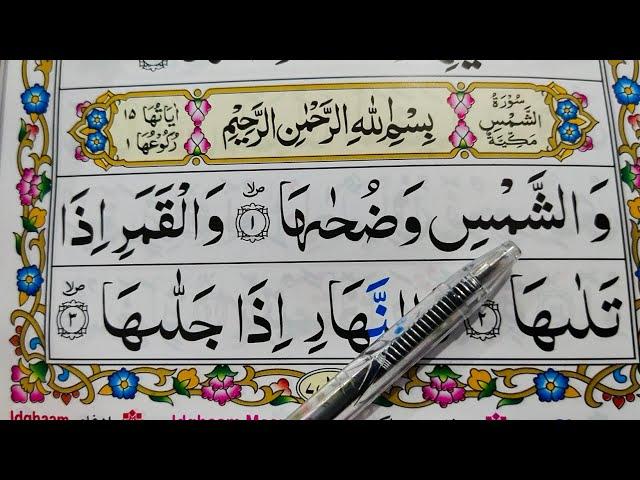 سُوْرَةُ الشَّمْسِ مَكِّيَّةٌ
بِسْمِ اللهِ الرَّحْمٰنِ الرَّحِيْمِ
اٰيَاتُهَا ١٥ رُكُوْعُهَا ١
وَالشَّمْسِ وَضُحٰىهَا ۙ ١ وَالْقَمَرِ اِذَا
تَلٰىهَا ٢ النَّهَارِ اِذَا جَلّٰىهَا ۙ ٣
Idghaam ادغام Idghaam